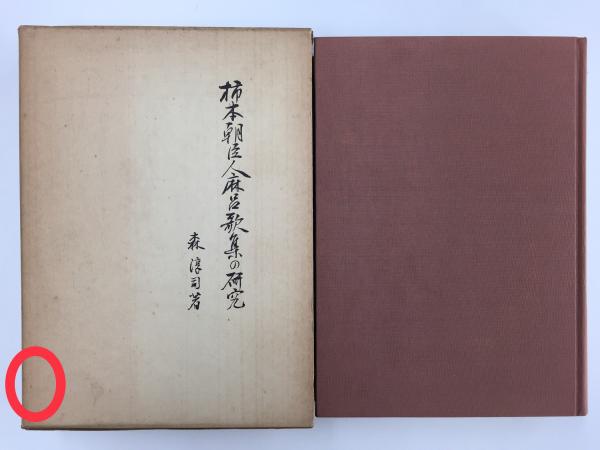 柿本朝臣人麻呂歌集の研究
森淳司著